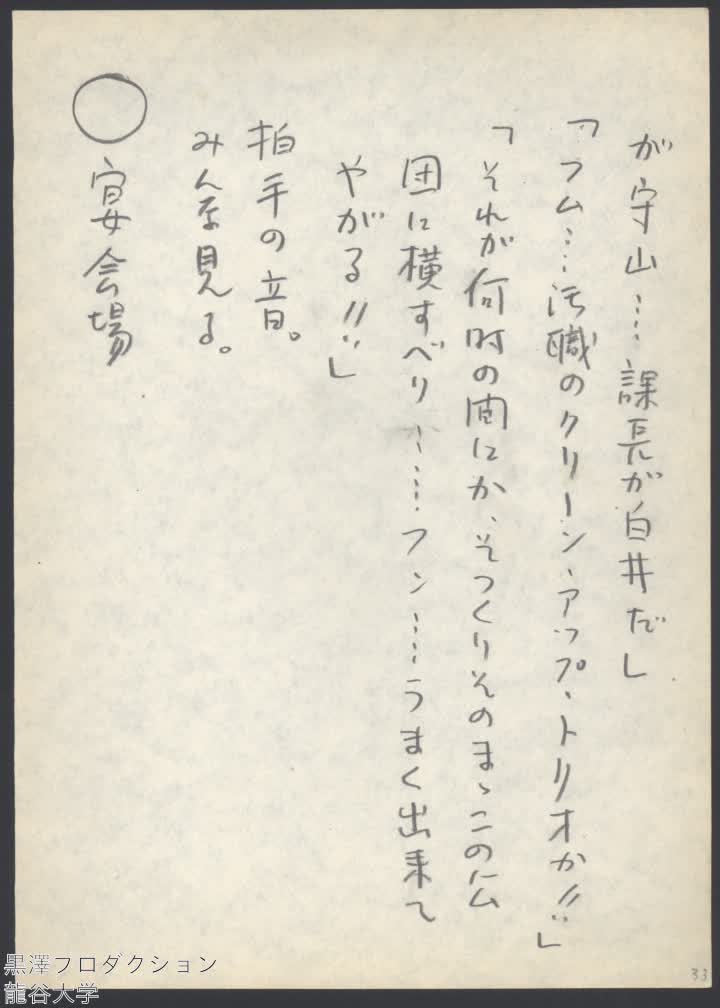 が守山……課長が白井だ」
「フム……汚職のクリーン、アップ、トリオか!!」
「それが何時の間にか、そつくりそのまゝこの公
団に横すべり……フン……うまく出来て
やがる!!」
拍手の音。
みんな見る。
○宴会場
33
黒澤プロダクション
龍谷大学